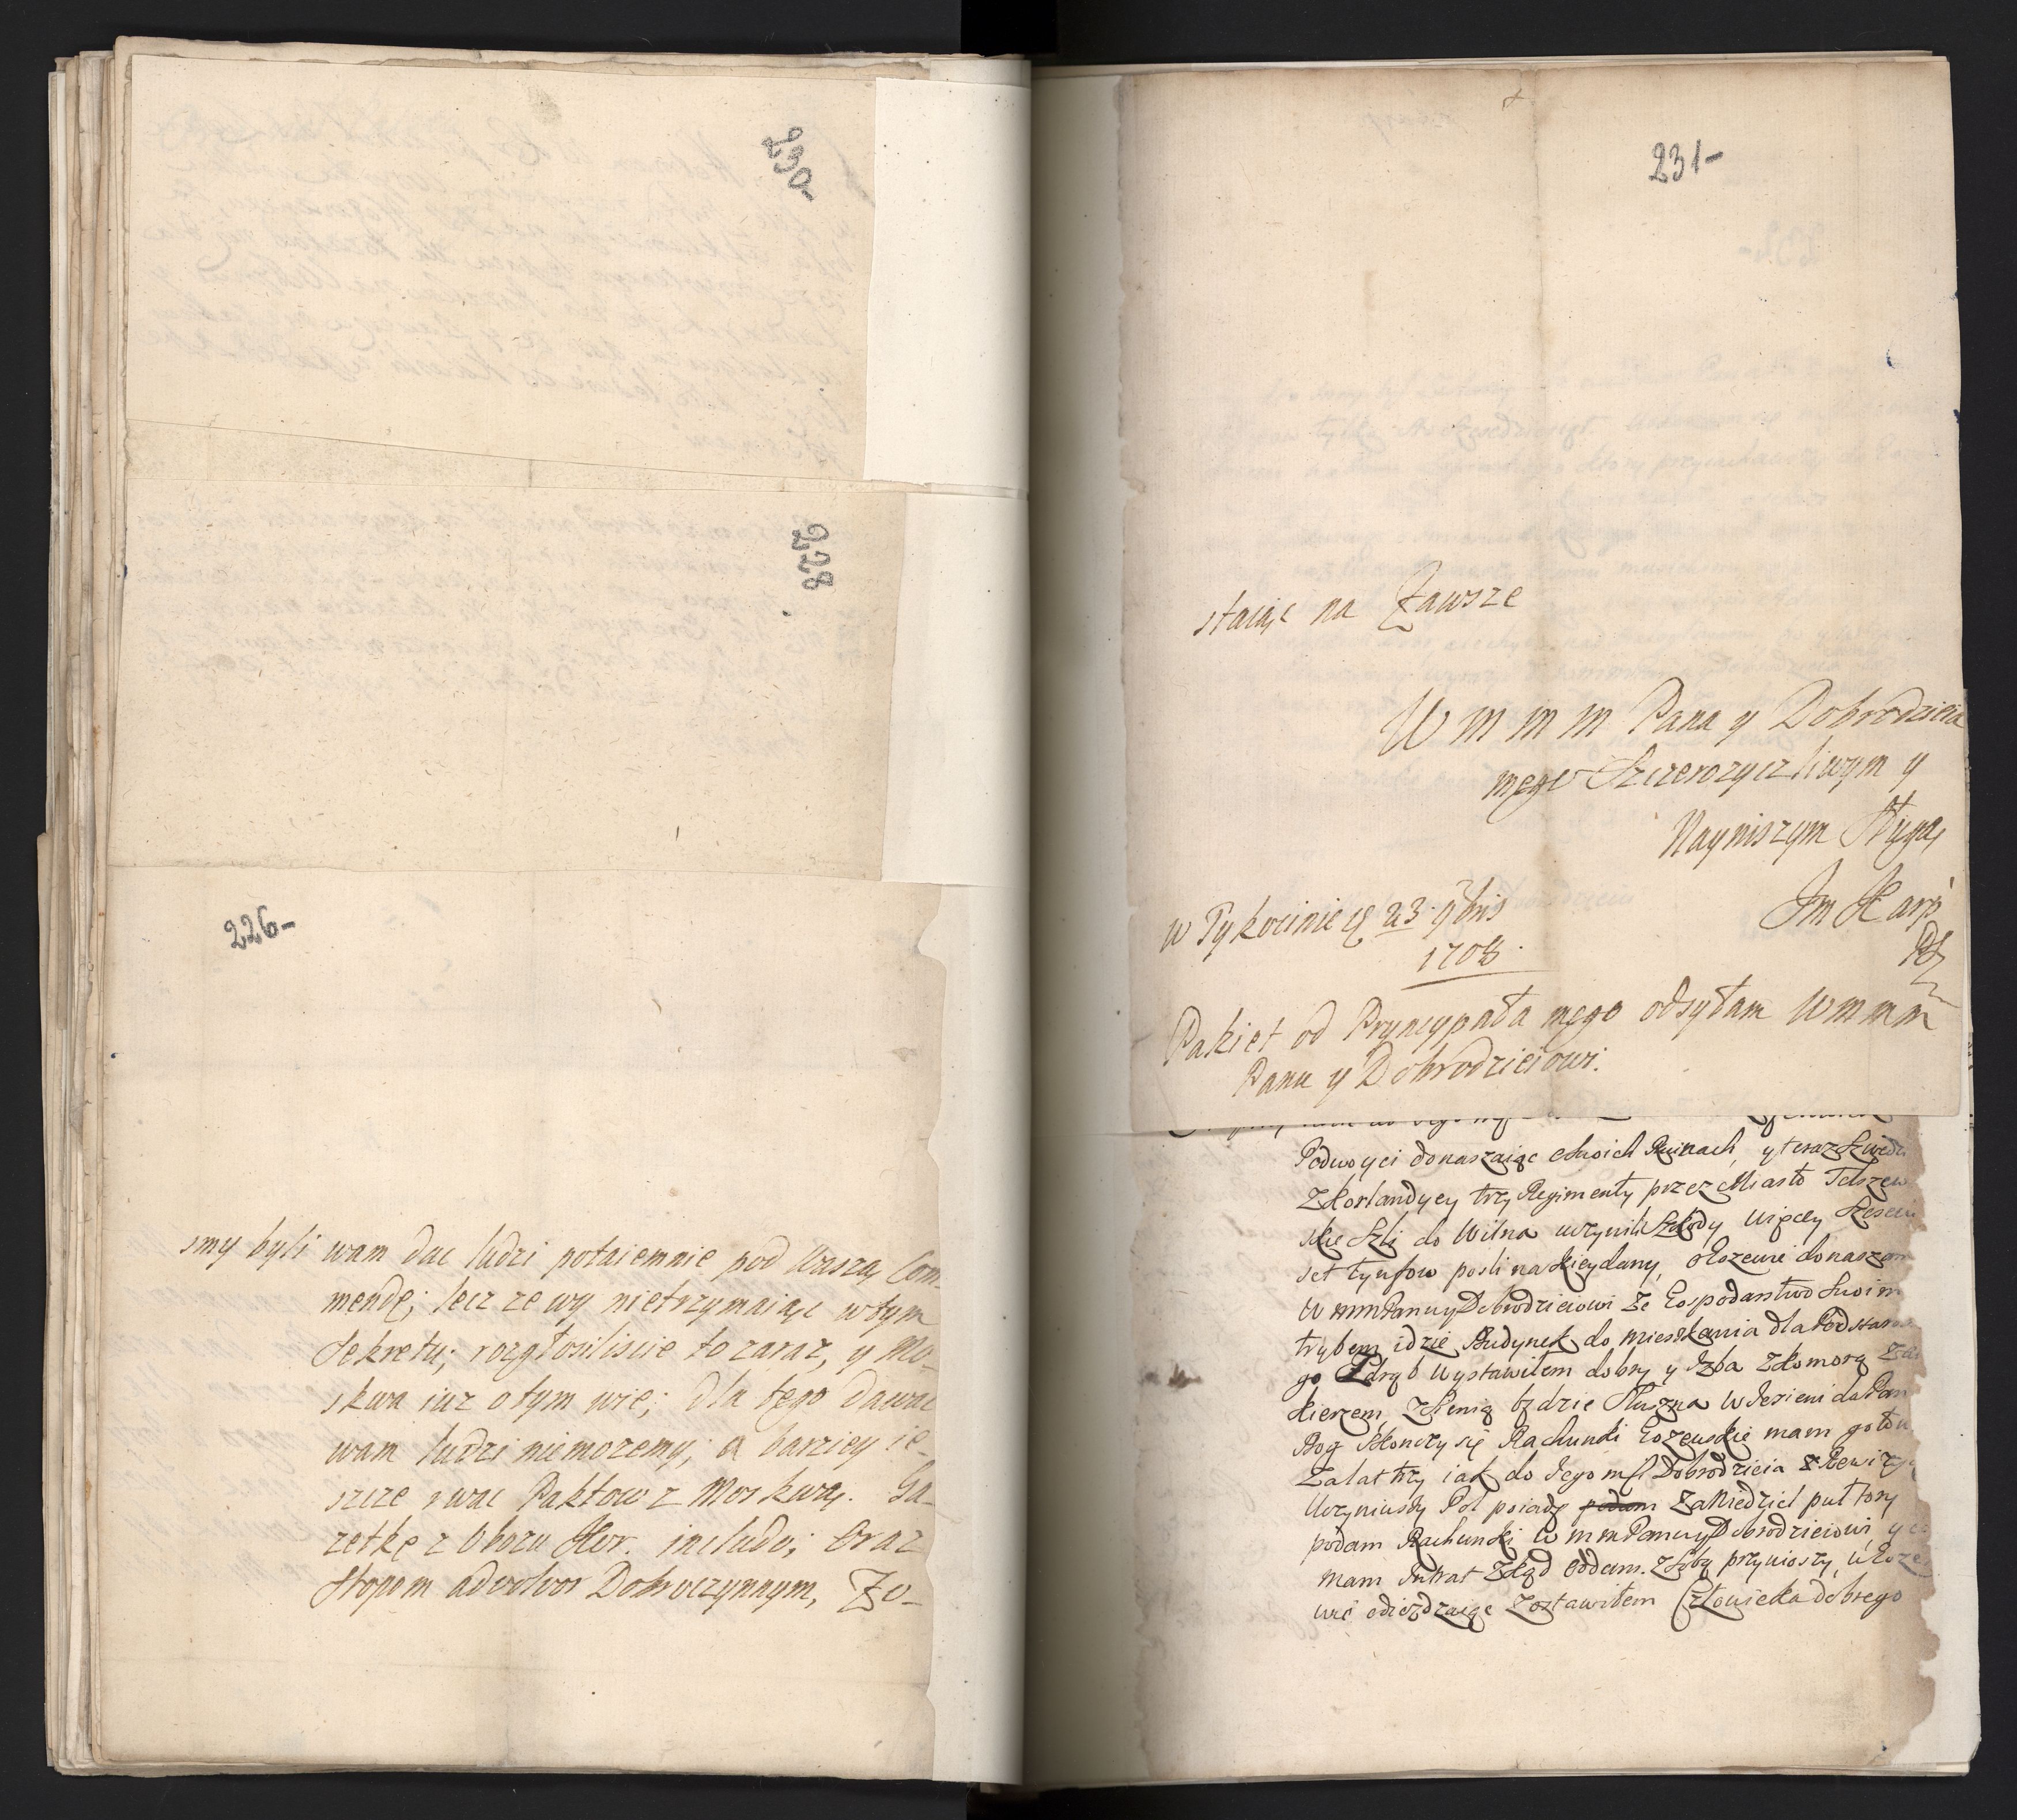 230-
228
226-
smy byli wam dac ludzi potaiemnie pod Waszą Com
mendę; lecz ze wy nietrzymaiąc wtym
Sekretu; rozgłosiliscie to zaraz, y Mo-
skwa iuz otym wie; dla tego dawac
wam ludzi niemozemy; a barziey ie-
szcze rwac Paktow z Moskwą. Ga-
zetkę z Obozu Hor. includo; Oraz
Stopom advolvor Dobroczynnym, Zo-
231-
staiąc na Zawsze
W M M M Pana y Dobrodzieia
mego Szczerozyczliwym y
Nayniszym Sługą
Jm Karp
w Tykocinie 23 9bris
1708.
Pakiet od Pryncypała mego odsyłam W M M M
Panu y Dobrodzieiowi.
Podwoyci donaszaiąc o swoich Ruinach, y teraz Szwedzi
z Korlandycy trzy Regimenty przez Miasto Telszew
skie Szli do Wilna uczynili Szkody Więcey
set tynfow posli na Kieydany, donaszam
W mm Panu y Dobrodzieiowi Ze Gospodarstwo Swoim
trybem idzie Budynek do mieszkania dla Podstaros
go Zdrąb wystawiłem dobry y Izba z Komorą
kierzem z Sienią bądzie Słuszna w Jesieni da Pan
Bog Skonczy się Rachunki mam gotow
Zalat trzy iak do Jego mści Dobrodzieia z Rewizy
Uczyniwszy Pol poiadę podam za Niedziel pułtory
podam Rachunki W mm Panu y Dobrodzieiowi y co
mam Intrat Zkąd oddam. z Sobą przyniosszy,
wie odiezdzaiąc Zostawiłem Człowieka dobrego